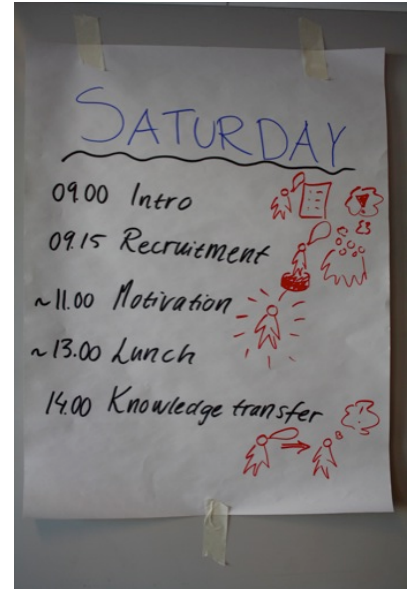 SATURDAY
09.00 Intro
09.15 Recruitment
~11.00 Motivation
~13.00 Lunch
14.00 Knowledge transfer